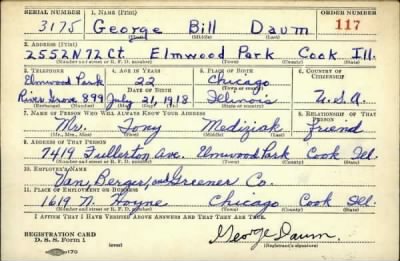 SERIAL NUMBER 1. NAME (Print) ORDER NUMBER
3175 George Bill Daum 117
(First) (Middle) (Last)
2. ADDRESS (Print)
2552 N 72 Ct. Elmwood Park Cook Ill.
(Number and street or R. F. D. number) (Town) (County) (State)
3. TELEPHONE 4. AGE IN YEARS 5. PLACE OF BIRTH 6. COUNTRY OF CITIZENSHIP
Elmwood Park 22 Chicago
DATE OF BIRTH (Town or county)
River Grove 899 July 21, 1918 Illinois U.S.A.
(Exchange) (Number) (Mo.) (Day) (Yr.) (State or country)
7. NAME OF PERSON WHO WILL ALWAYS KNOW YOUR ADDRESS 8. RELATIONSHIP OF THAT PERSON
Mr. Tony Mediziak friend
(Mr., Mrs., Miss) (First) (Middle) (Last)
9. ADDRESS OF THAT PERSON
7419 Fullerton Ave. Elmwood Park Cook Ill.
(Number and street or R. F. D. number) (Town) (County) (State)
10. EMPLOYER'S NAME
Van, Berger, and Greener Co.
11. PLACE OF EMPLOYMENT OR BUSINESS
1619 N. Hoyne Chicago Cook Ill.
(Number and street or R. F. D. number) (Town) (County) (State)
I AFFIRM THAT I HAVE VERIFIED ABOVE ANSWERS AND THAT THEY ARE TRUE.
REGISTRATION CARD
D. S. S. Form 1 (over) George Daum.
(Registrant's signature)